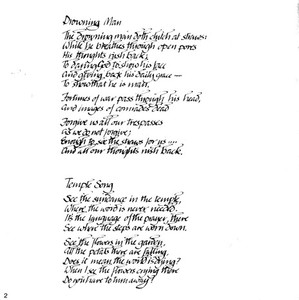 Drowning Man
The drowning man doth clutch at straws:
While he breathes through open pores
His thoughts rush back;
To daring God to show his face
And giving back his daily grace —
To show that he is man.
Fortunes of war pass through his head,
And images of comrades dead
Forgive us all our trespasses
As we do not forgive;
Enough to see the straws for us ....
And all our thoughts rush back.
Temple Song
See the sundance in the temple,
Where the word is never needed.
Its the language of the prayer, there
See where the steps are worn down.
See the flowers in the garden,
All the petals there are falling.
Does it mean the world is dying?
When I see the flowers crying there
Do you have to turn away?
2